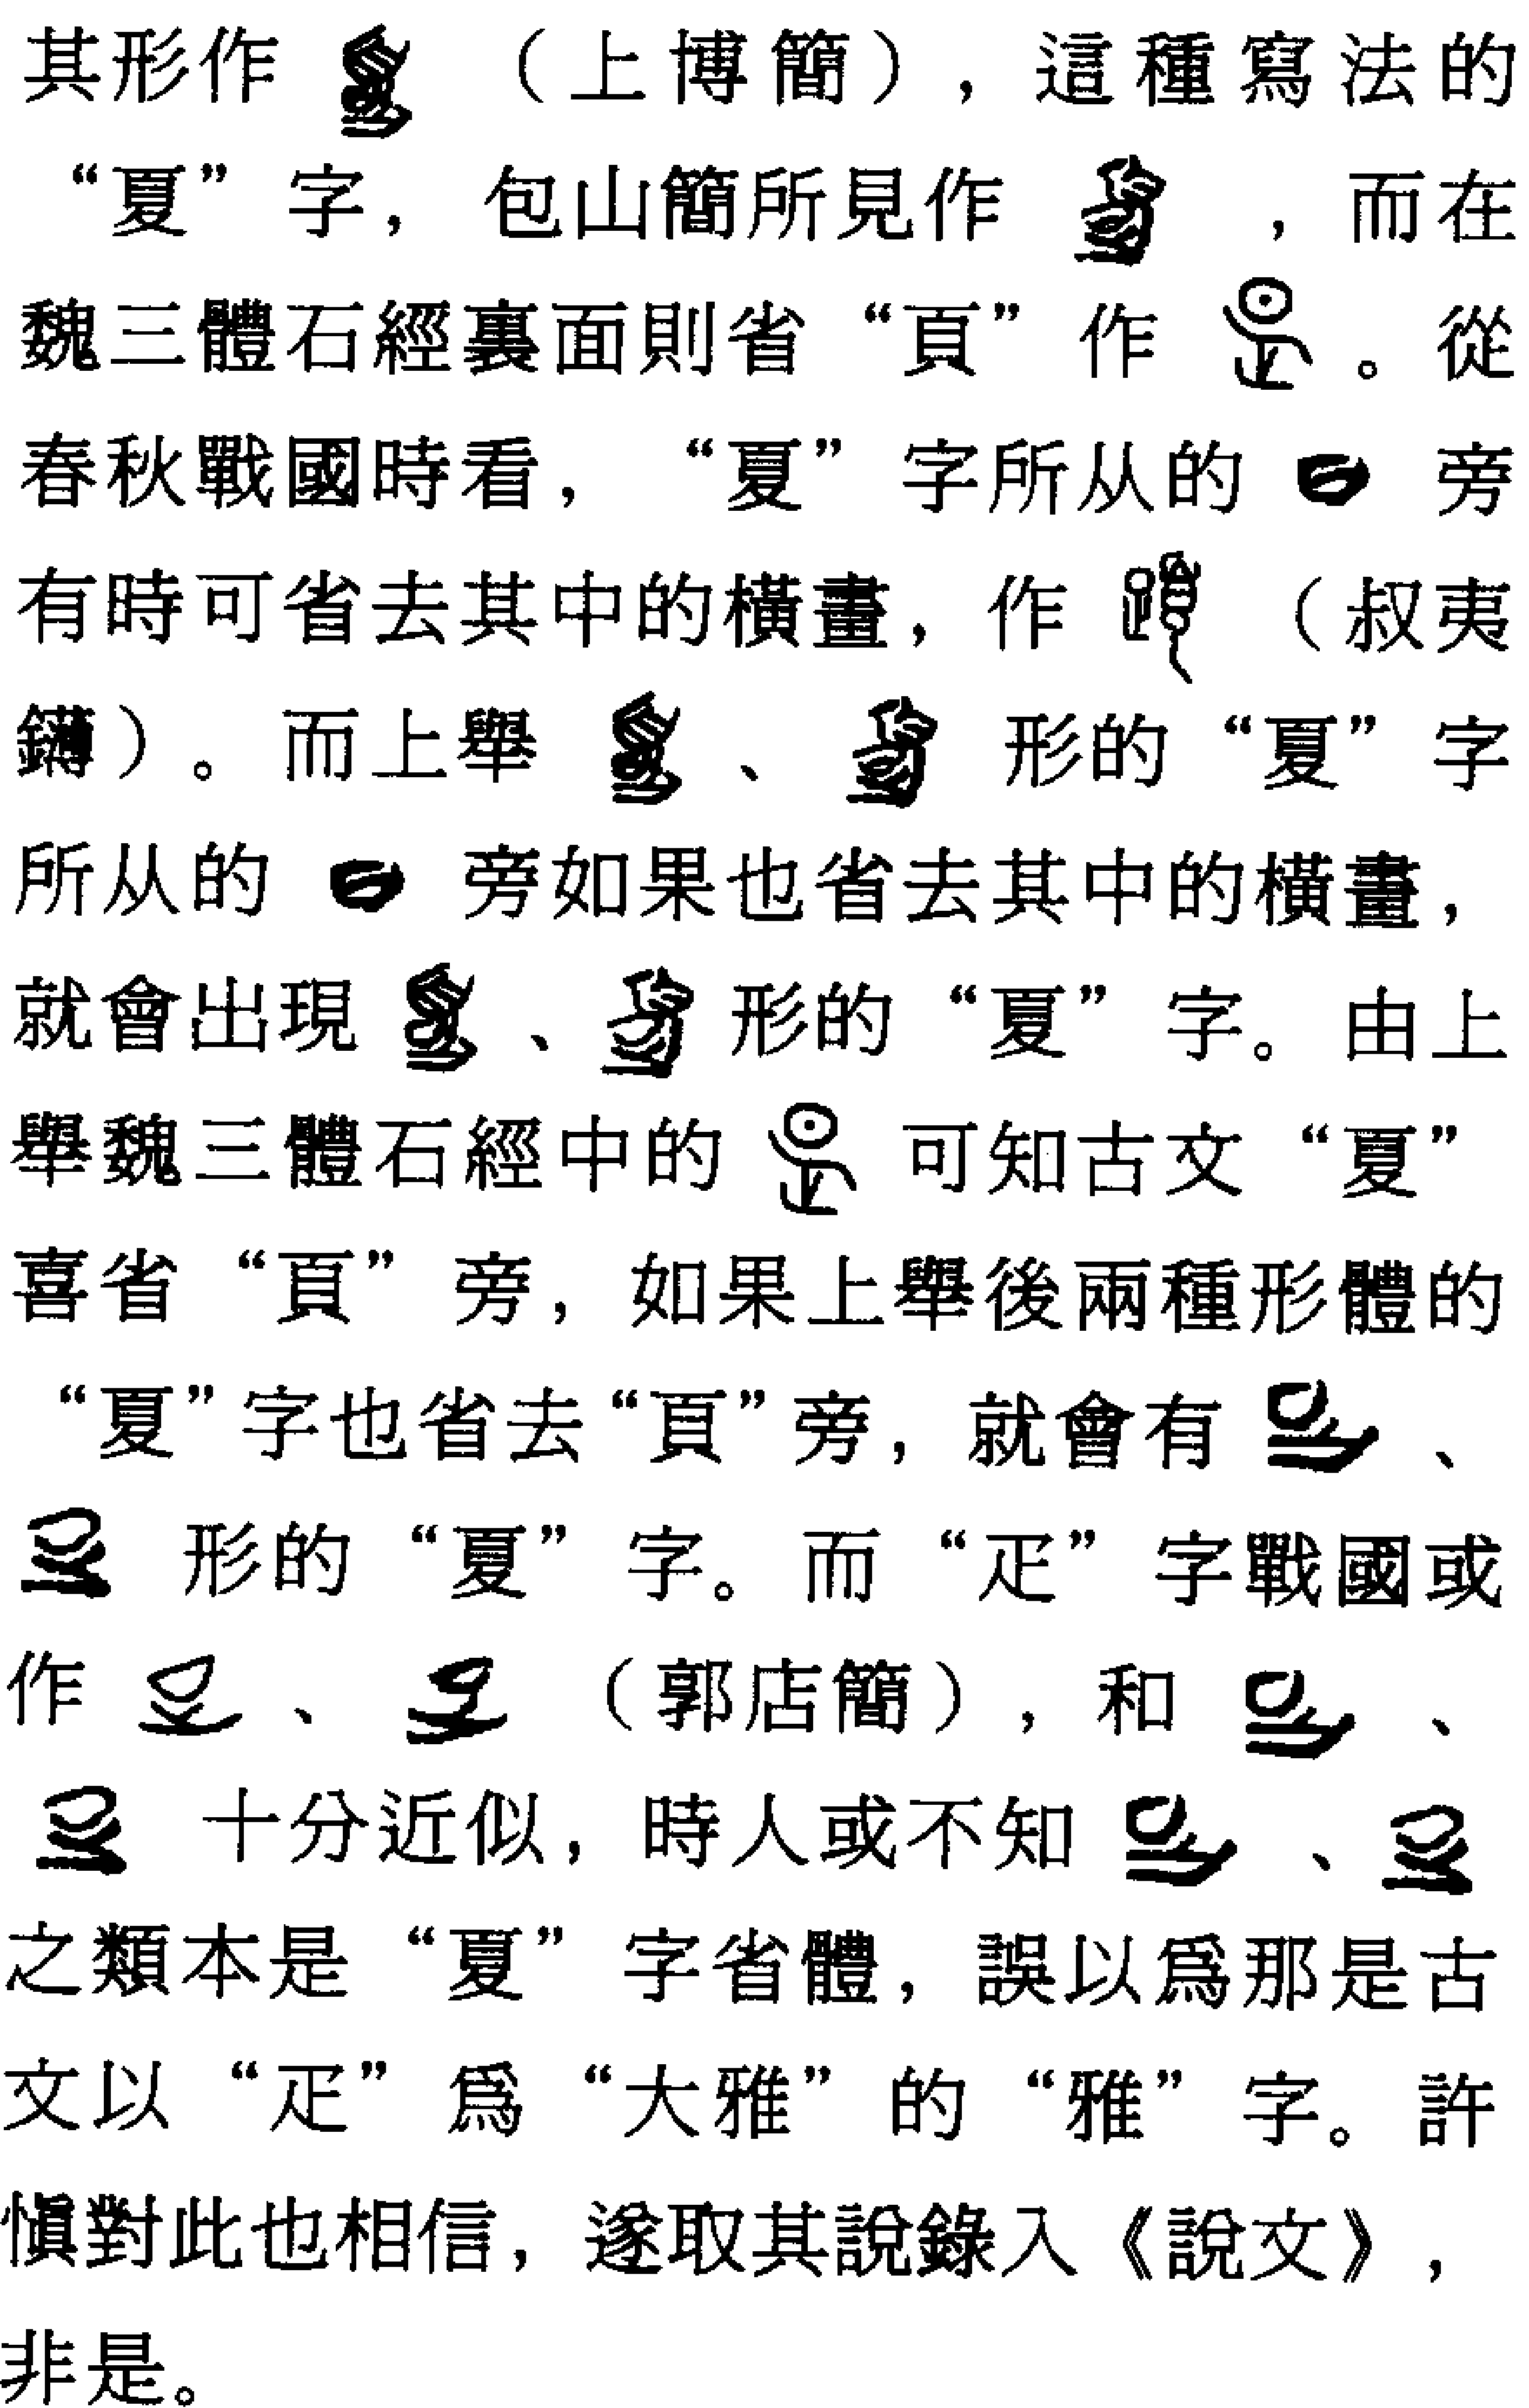 其形作（上博簡），這種寫法的
“夏”字，包山簡所見作，而在
魏三體石經裏面則省“頁”作。從
春秋戰國時看，“夏”字所从的旁
有時可省去其中的橫畫，作（叔夷
鎛）。而上舉、形的“夏”字
所从的旁如果也省去其中的橫畫，
就會出現、形的“夏”字。由上
舉魏三體石經中的可知古文“夏”
喜省“頁”旁，如果上舉後兩種形體的
“夏”字也省去“頁”旁，就會有、
形的“夏”字。而“疋”字戰國或
作、（郭店簡），和、
十分近似，時人或不知、
之類本是“夏”字省體，誤以爲那是古
文以“疋”爲“大雅”的“雅”字。許
慎對此也相信，遂取其說錄入《說文》，
非是。